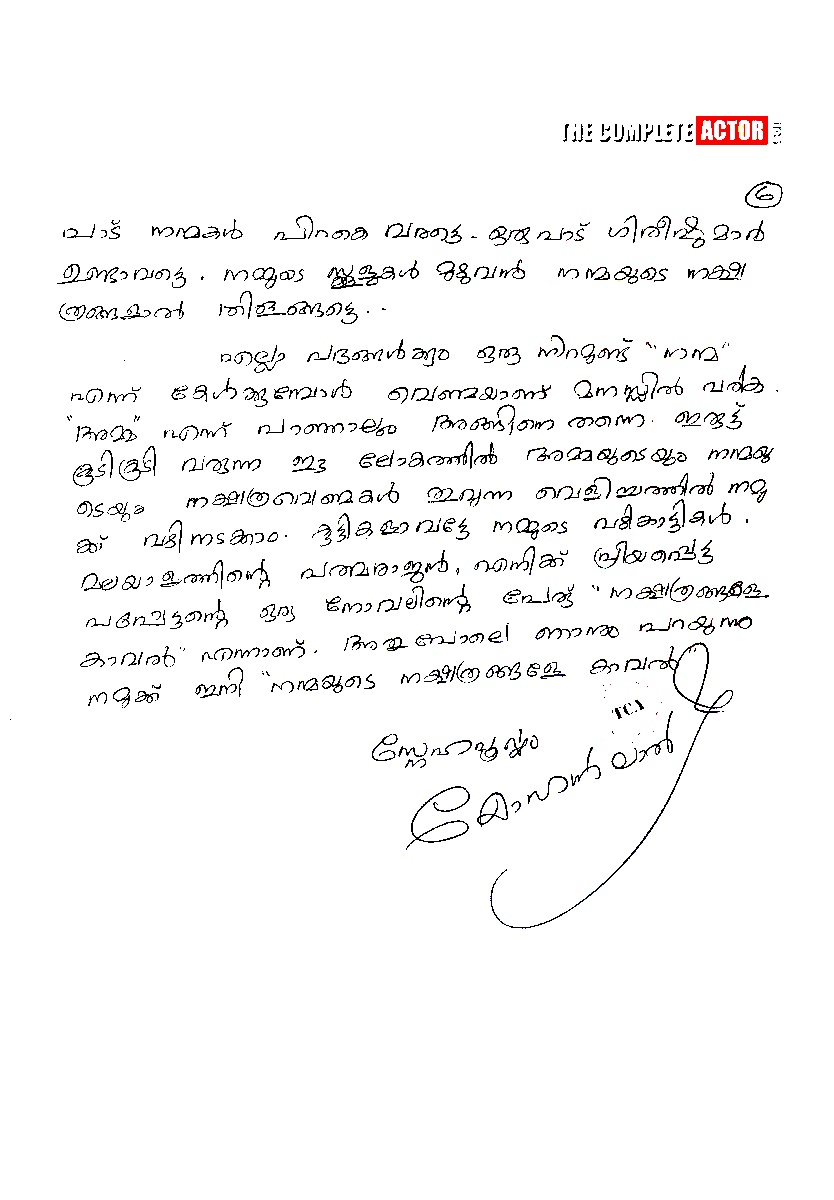 THE COMPLETE ACTOR
6
പാട് നന്മകൾ പിറകെ വരട്ടെ. ഒരുപാട് ഗിരീഷുമാർ
ഉണ്ടാവട്ടെ. നമ്മുടെ സ്ക്കൂളുകൾ മുഴുവൻ നന്മയുടെ നക്ഷ
ത്രങ്ങളാൽ തിളങ്ങട്ടെ..
എല്ലാ പദങ്ങൾക്കും ഒരു നിറമുണ്ട് "നന്മ"
എന്ന് കേൾക്കുമ്പോൾ വെണ്മയാണ് മനസ്സിൽ വരിക.
"അമ്മ" എന്ന് പറഞ്ഞാലും അങ്ങിനെ തന്നെ. ഇരുട്ട്
കൂടികൂടി വരുന്ന ഈ ലോകത്തിൽ അമ്മയുടെയും നന്മയു
ടെയും നക്ഷത്രവെണ്മകൾ തൂവുന്ന വെളിച്ചത്തിൽ നമു
ക്ക് വഴിനടക്കാം. കുട്ടികളാവട്ടേ നമ്മുടെ വഴികാട്ടികൾ.
മലയാളത്തിന്റെ പത്മരാജൻ, എനിക്ക് പ്രിയപ്പെട്ട
പപ്പേട്ടന്റെ ഒരു നോവലിന്റെ പേര് "നക്ഷത്രങ്ങളേ
കാവൽ" എന്നാണ്. അതുപോലെ ഞാനും പറയുന്നു
നമുക്ക് ഇനി "നന്മയുടെ നക്ഷത്രങ്ങളേ കാവൽ"
TCA
സ്നേഹപൂർവ്വം
മോഹൻലാൽ